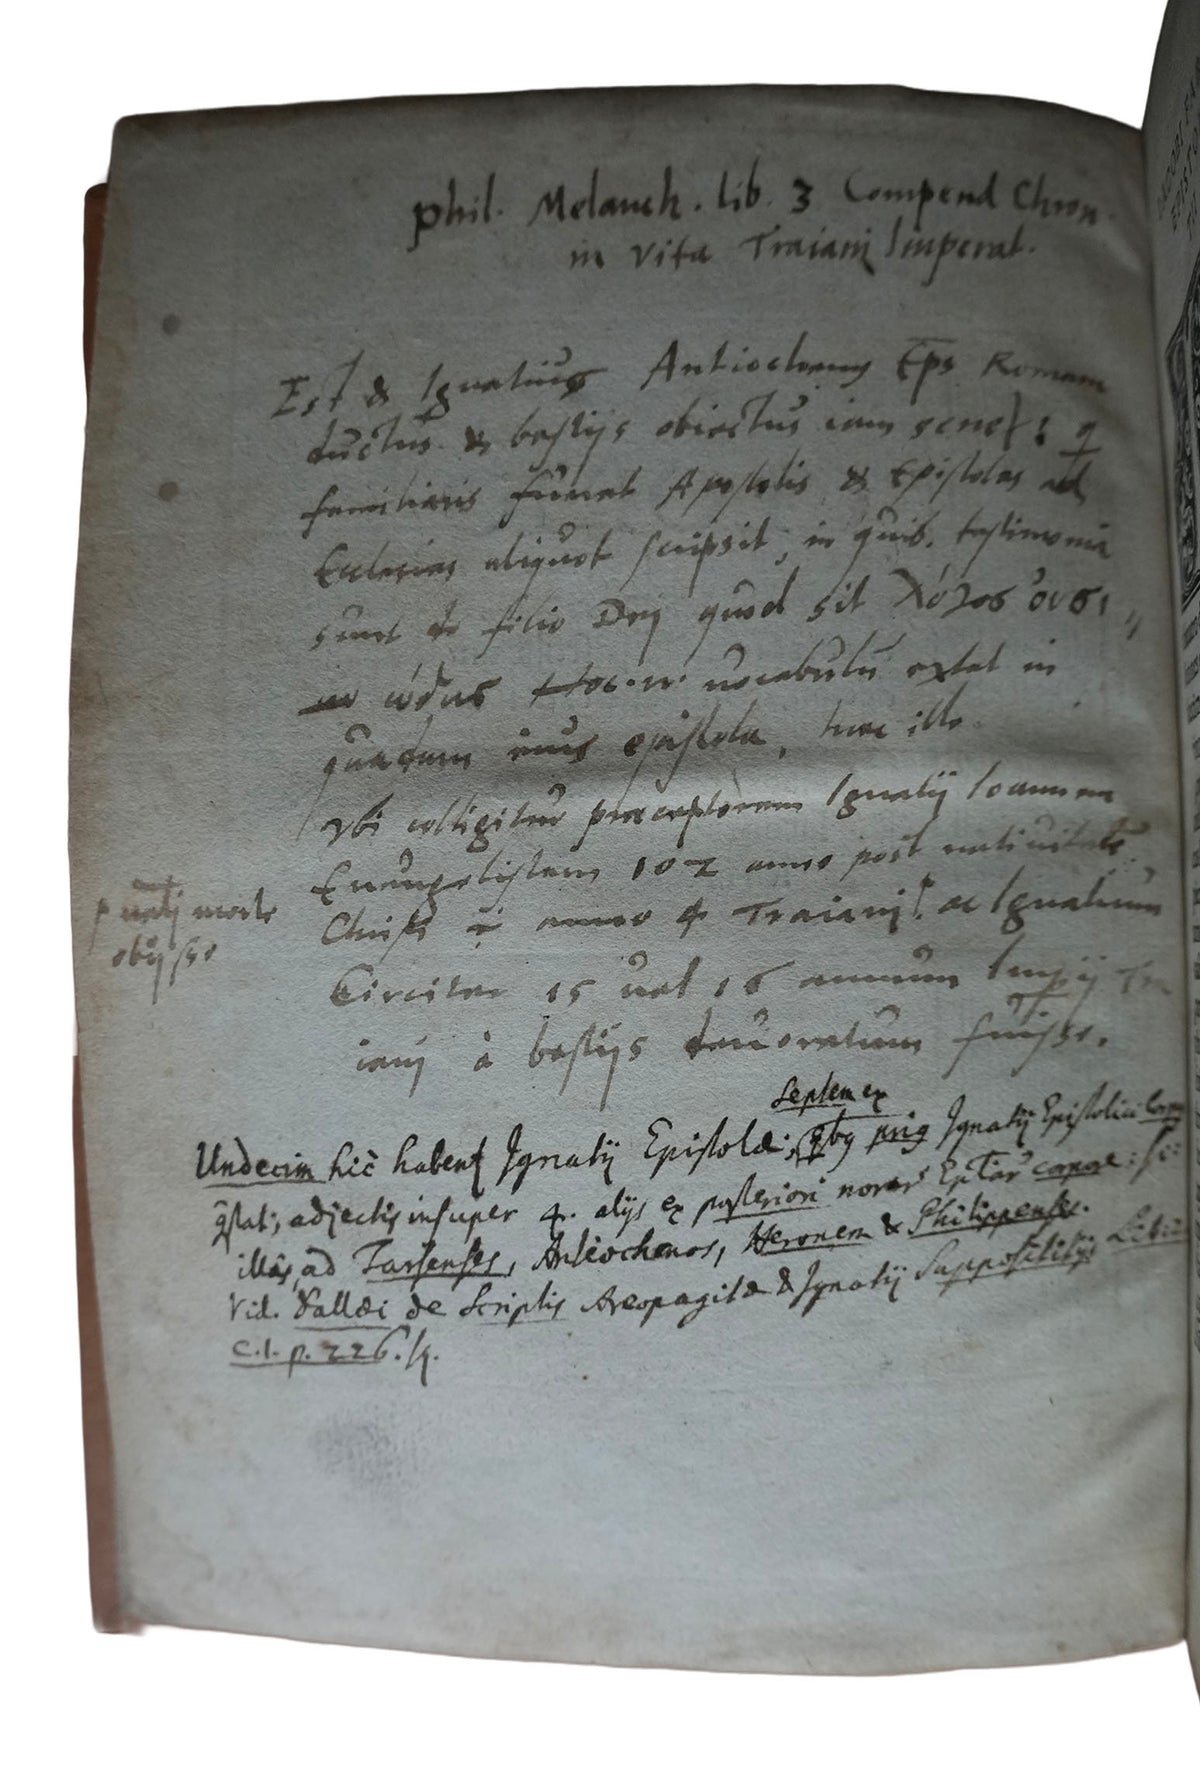 Phil. Melanch. lib. 3 Compend Chron.
in vita Traiani Imperat.
Est & Ignatius Antiochenus Eps Romam
ductus & bestijs obiectus iam senex; q
familiaris fuerat Apostolis & Epistolas ad
Ecclesias aliquot scripsit, in quib. testimonia
sunt de filio Dej quod sit λόγος οὐσι
ώδης Hoc. n. vocabulū extat in
quadam eius epistola, haec ille.
Vbi colligitur praeceptorem Ignatij Ioannem
Euangelistam 102 anno post nativitatē
Christi anno 4 Traianj, ac Ignatium
p morte
obijsse
Circiter 15 uel 16 annum Impij Tra
ianj à bestijs deuoratum fuisse.
Septem ex
Undecim hic habent Ignatij Epistolæ; Ignatij Epistolici
adjectis insuper 4. alijs ex posteriori corpore: sc:
illâs, ad Tarsenses, Antiochenos, Heronem & Philippenses.
Vid. Dallæi de Scriptis Areopagitæ & Ignatij Suppositiitijs Lib.
C.1. p. 226. sq.